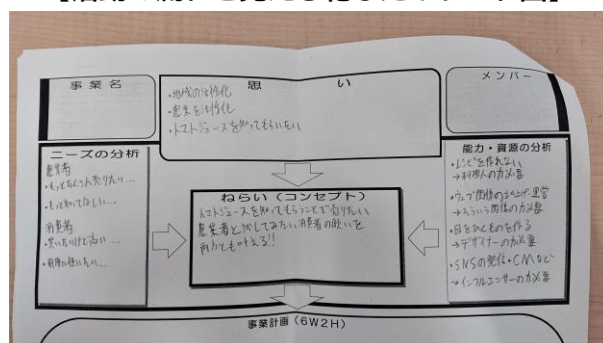 事業名
思い
・地域の活性化
・農業を活性化
・トマトジュースを知ってもらいたい
メンバー
ニーズの分析
農業者
・もっとたくさん売りたい…
・もっと知ってほしい…
消費者
・買いたいけど高い…
・気軽に使いたい…
ねらい(コンセプト)
トマトジュースを知ってもらうことで売りたい
農業者と試してみたい消費者の願いを
両方とも叶える!!
能力・資源の分析
・レシピを作れない
→料理人の力必要
・ウェブ関係の立ち上げ・運営
→そういう関係の力必要
・目をひくものを作る
→デザイナーの力必要
・SNSの発信・CMなど
→インフルエンサーの力必要
事業計画(6W2H)